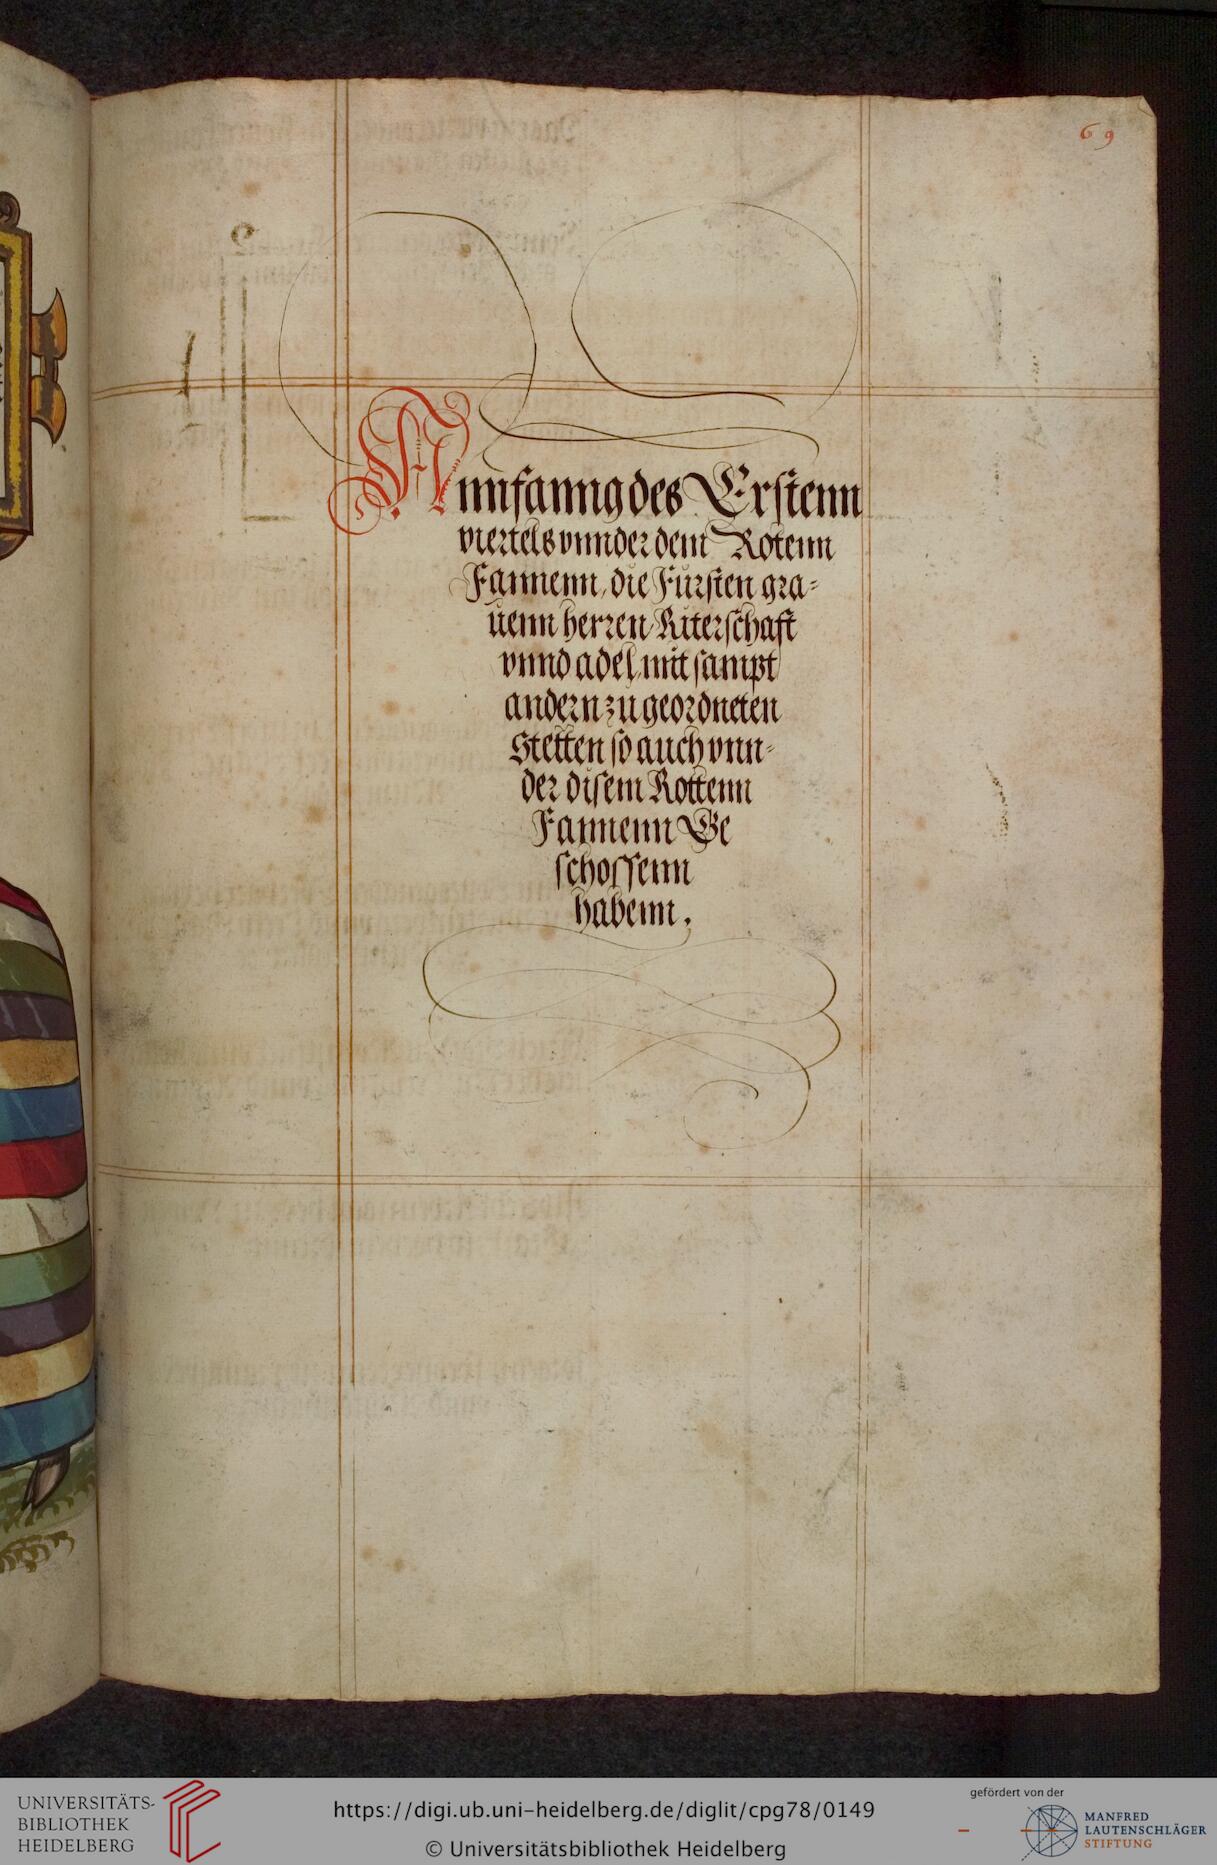 69
Annfanng des Erstenn
viertels vnnder dem Rotenn
Fannenn, die Fürsten gra-
uenn herren Riterschafft
vnnd adel, mit sampt
andern zu geordneten
Stetten so auch vnn-
der disem Rottenn
Fannenn Ge
schossenn
habenn.
UNIVERSITÄTS-
BIBLIOTHEK
HEIDELBERG
https://digi.ub.uni-heidelberg.de/diglit/cpg78/0149
© Universitätsbibliothek Heidelberg
gefördert von der
MANFRED
LAUTENSCHLÄGER
STIFTUNG